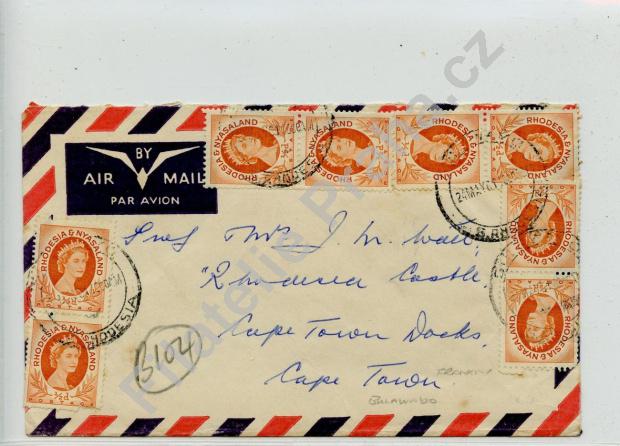 BY
AIR MAIL
PAR AVION
RHODESIA & NYASALAND
RHODESIA & NYASALAND
RHODESIA & NYASALAND
RHODESIA & NYASALAND
RHODESIA & NYASALAND
RHODESIA & NYASALAND
RHODESIA & NYASALAND
RHODESIA & NYASALAND
24 MAY
S. RHO
RHODESIA
Mrs J. M. Wall,
"Rhodesia Castle,
Cape Town Docks,
Cape Town
B104
BULAWAYO
Philatelie Praha.cz